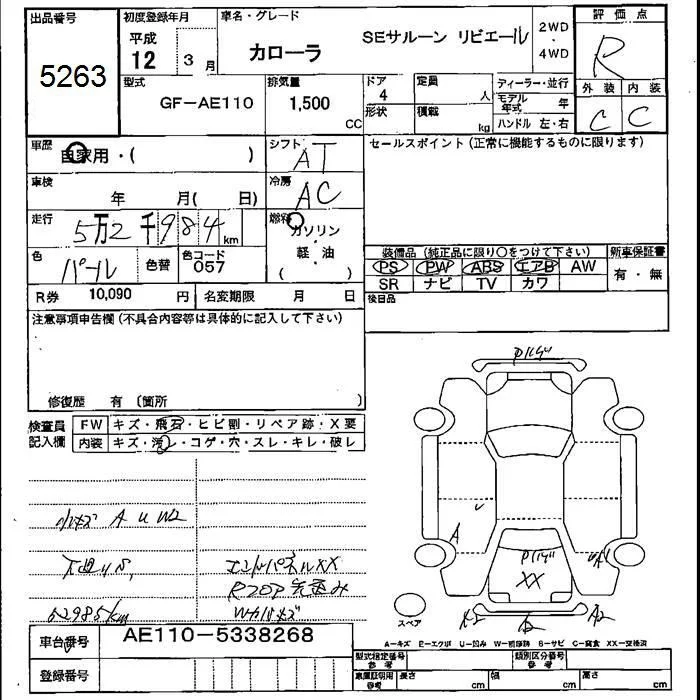 出品番号
5263
初度登録年月
平成
12 3月
車名・グレード
カローラ SEサルーン リビエール
2WD
・
4WD
評価点
R
外装 内装
C C
型式
GF-AE110
排気量
1,500
CC
ドア
4
形状
定員
人
積載
kg
ディーラー・並行
モデル年式 年
ハンドル 左・右
車歴
自家用・( )
シフト
AT
セールスポイント(正常に機能するものに限ります)
車検
年 月(日)
冷房
AC
走行
5万2千984km
燃料
ガソリン
・
軽油
( )
色
パール
色替
色コード
057
装備品(純正品に限り○をつけて下さい)
新車保証書
PS PW ABS エアB AW
SR ナビ TV カワ
有・無
R券 10,090円
名変期限 月 日
後日品
注意事項申告欄(不具合内容等は具体的に記入して下さい)
修復歴 有 〔箇所 〕
検査員
記入欄
FW キズ・飛石・ヒビ割・リペア跡・X要
内装 キズ・汚レ・コゲ・穴・スレ・キレ・破レ
小キズ A U W2
下廻りサ
エンドパネルXX
52985km
A
XX
スペア
A2
A-キズ E-エクボ U-凹み W-補修跡 S-サビ C-腐食 XX-交換済
車台番号
AE110-5338268
登録番号
型式指定番号
参考
類別区分番号
参考
車庫証明用
参考
長さ cm
幅 cm
高さ cm